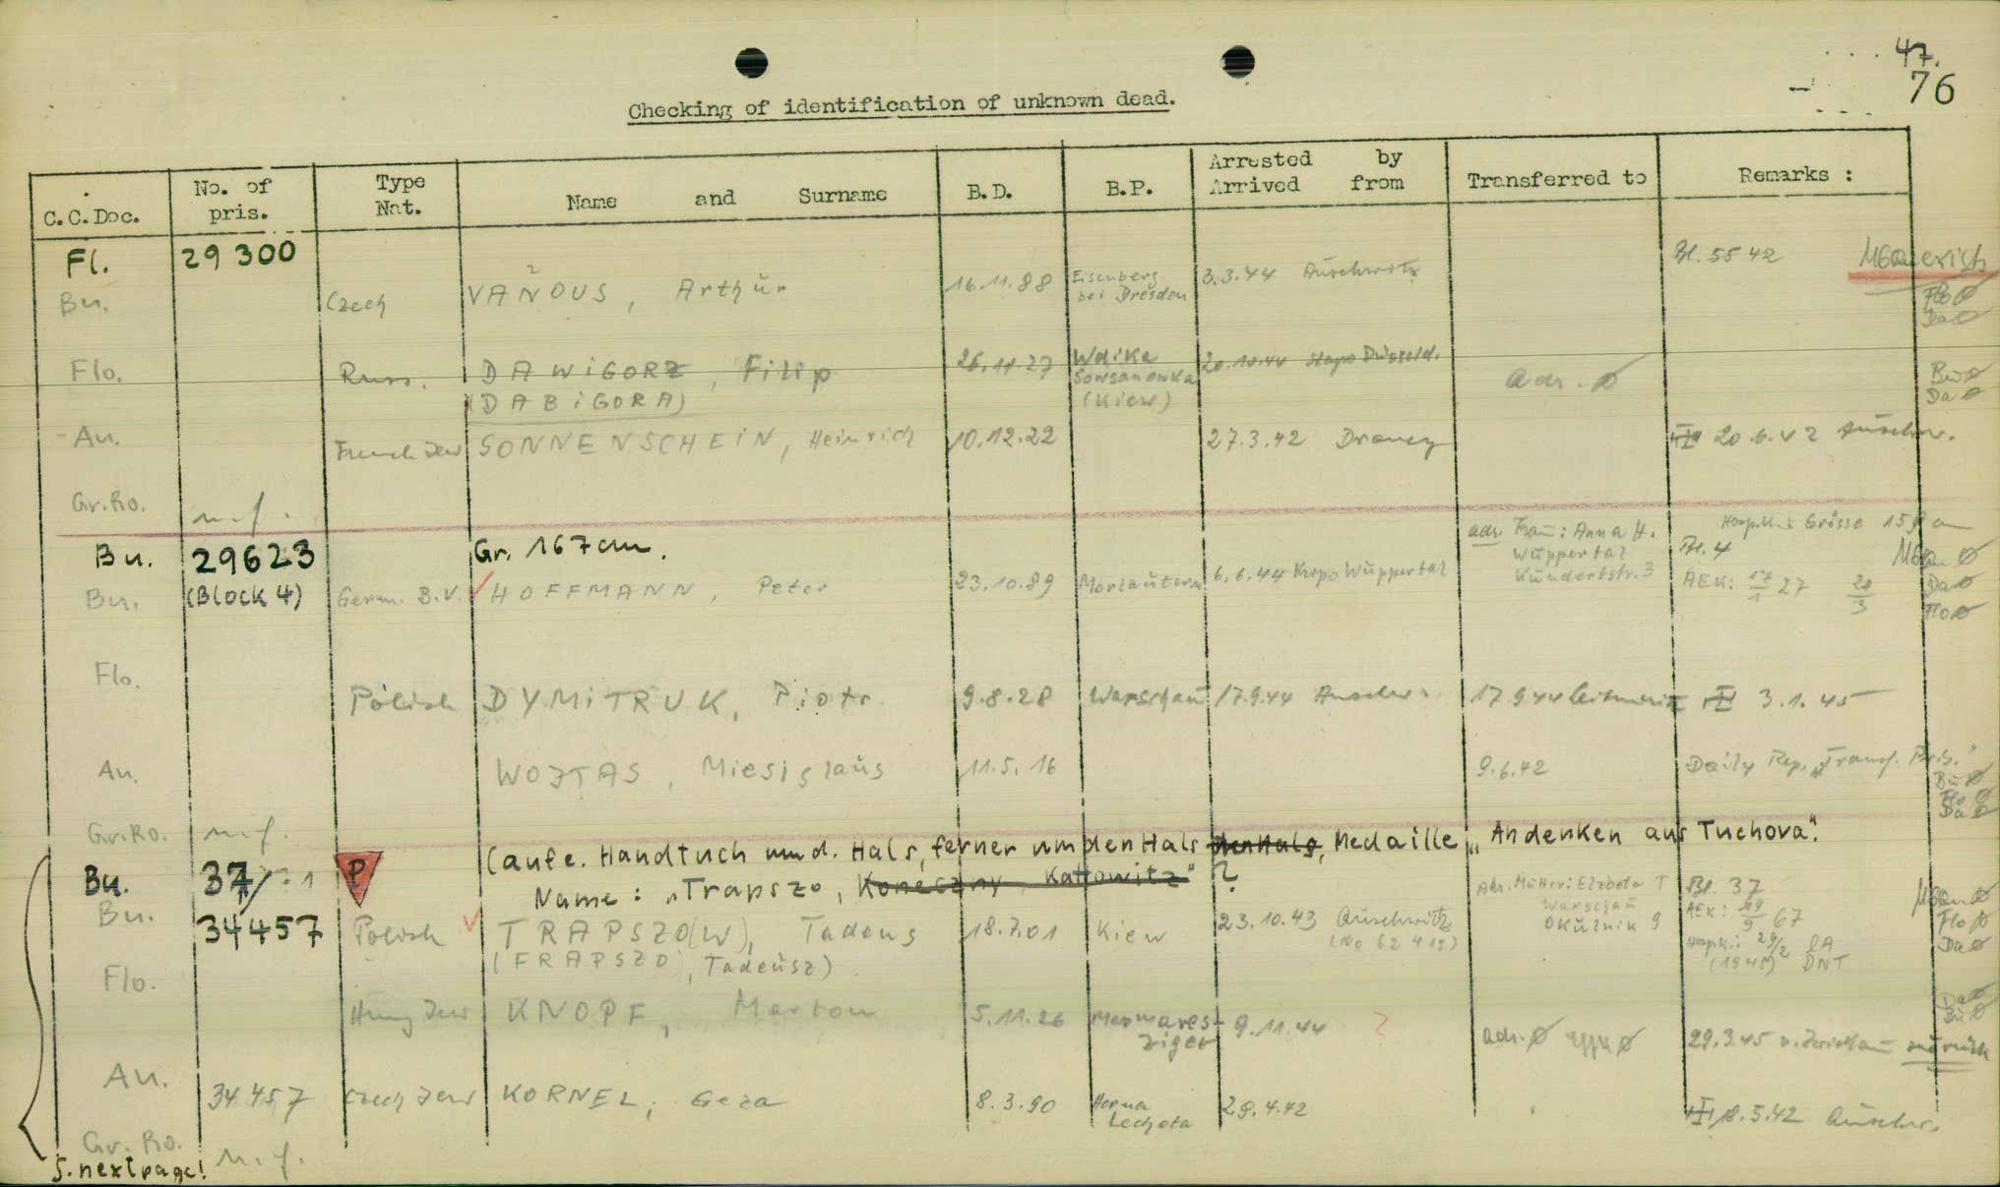 47.
76
Checking of identification of unknown dead.
C.C.Doc. No. of pris. Type Nat. Name and Surname B.D. B.P. Arrested by Arrived from Transferred to Remarks :
Fl. 29 300 Bl. 5542
Bu. Czech VAŇOUS, Arthur 16.11.88 Eisenberg bei Dresden 3.3.44 Auschwitz
Flo Ø
Da Ø
Flo. Russ. DAWIGORZ, Filip 26.11.27 Wolka Sowsanowka (Kiew) 20.10.44 Stapo Düsseld. adr. Ø Bu Ø
(DABIGORA) Da Ø
Au. French Jew SONNENSCHEIN, Heinrich 10.12.22 27.3.42 Drancy 20.6.42 Auschw.
Gr.Ro. n.f.
Bu. 29623 Gr. 167 cm. adr. Frau: Anna H. Wuppertal Kundertstr. 3 Grösse 158 Bl. 4
Bu. (Block 4) Germ. B.V. HOFFMANN, Peter 23.10.89 Morlautern 6.6.44 Kripo Wuppertal AEK: 17/1 27 20/3 Da Ø
Flo Ø
Flo. Polish DYMITRUK, Piotr 9.8.28 Warschau 17.9.44 Auschw. 17.9.44 Leitmeritz 3.1.45
Au. WOJTAS, Miesislaus 11.5.16 9.6.42 Daily Rep. "Transf. Pris."
Bu Ø
Flo Ø
Da Ø
Gr.Ro. n.f.
(aufe. Handtuch um d. Hals, ferner um den Hals den Hals, Medaille „Andenken aus Tuchova".
Bu. 37/ P Name: „Trapszo, Koneczny, Kattowitz" ? Adr. Mutter: Elzbeta T Warschau Okulnik 9 Bl. 37
Bu. 34457 Polish TRAPSZO(W), Tadeus 18.7.01 Kiew 23.10.43 Auschwitz AEK: 67
(FRAPSZO, Tadeusz) (1945) DNT
Flo Ø
Da Ø
Flo. Hung Jew KNOPF, Marton 5.11.26 9.11.44 ? adr. Ø 29.3.45 v. Zwickau zurück
Da Ø
Bu Ø
Au. 34457 Czech Jew KORNEL, Geza 8.3.90 Horna Lechota 29.4.42 18.5.42 Auschw.
Gr. Ro. n.f.
s. next page!